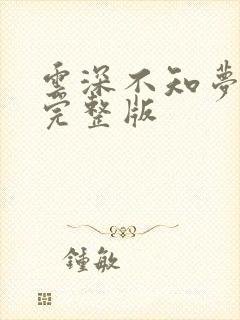 雲深不知夢
完整版
鍾敏